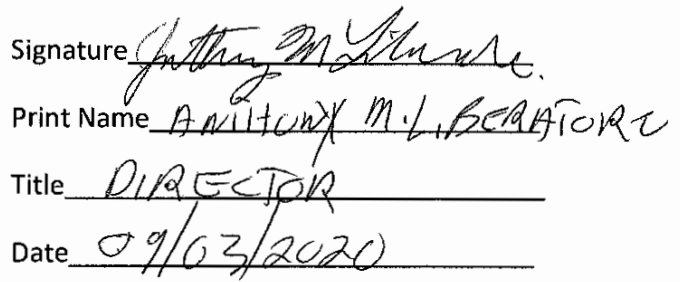 Signature Anthony M Liberatore
Print Name ANTHONY M. LIBERATORE
Title DIRECTOR
Date 09/03/2020